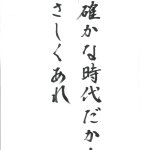 確かな時代だか
さしくあれ